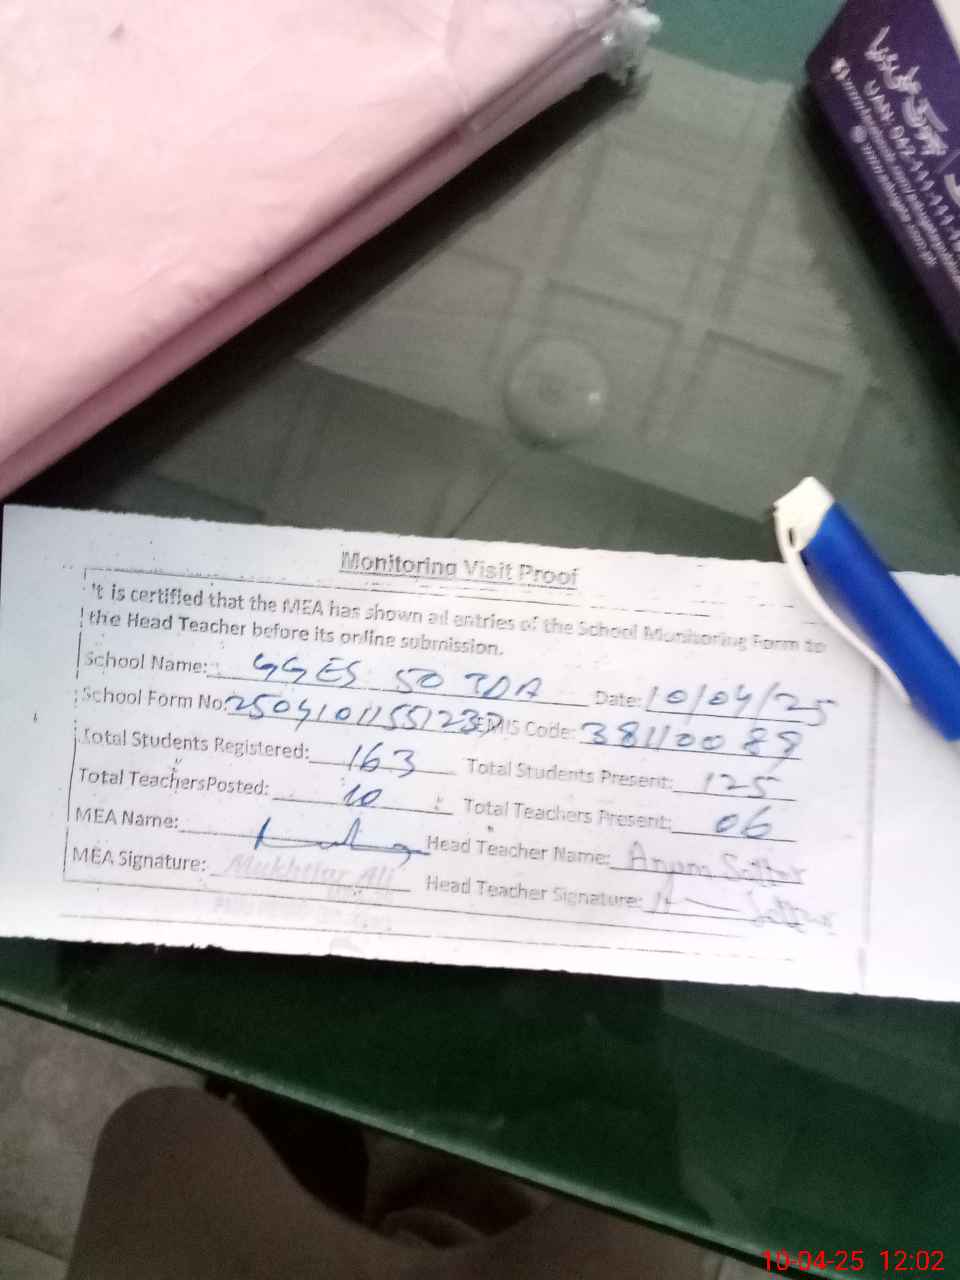 Monitoring Visit Proof
It is certified that the MEA has shown all entries of the School Monitoring Form to
the Head Teacher before its online submission.
School Name: GGES 50 TDA Date: 10/04/25
School Form No: EMIS Code: 38110089
Total Students Registered: 163 Total Students Present: 125
Total TeachersPosted: 10 Total Teachers Present: 06
MEA Name: Head Teacher Name: Anjum Sattar
MEA Signature: Mukhtiar Ali Head Teacher Signature:
UAN: 042-111-111-
10-04-25 12:02